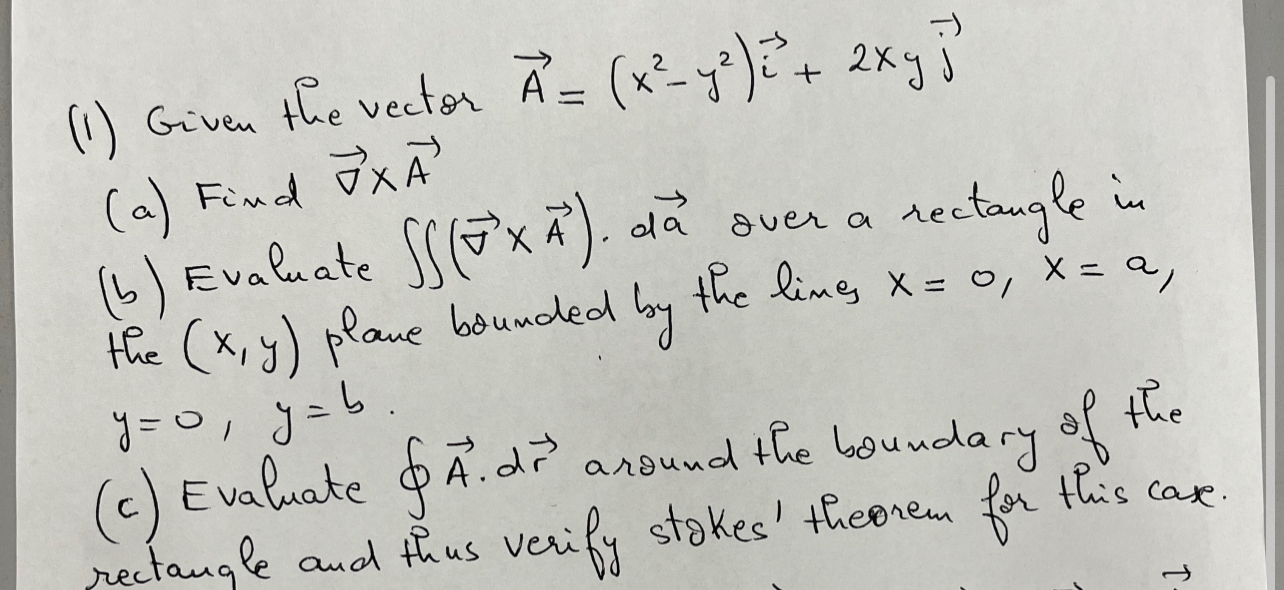 (1) Given the vector $\vec{A} = (x^2 - y^2)\vec{i} + 2xy\vec{j}$
(a) Find $\vec{\nabla} \times \vec{A}$
(b) Evaluate $\iint (\vec{\nabla} \times \vec{A}) . d\vec{a}$ over a rectangle in
the (x, y) plane bounded by the lines x = 0, x = a,
y = 0, y = b.
(c) Evaluate $\oint \vec{A} . d\vec{r}$ around the boundary of the
rectangle and thus verify stokes' theorem for this case.